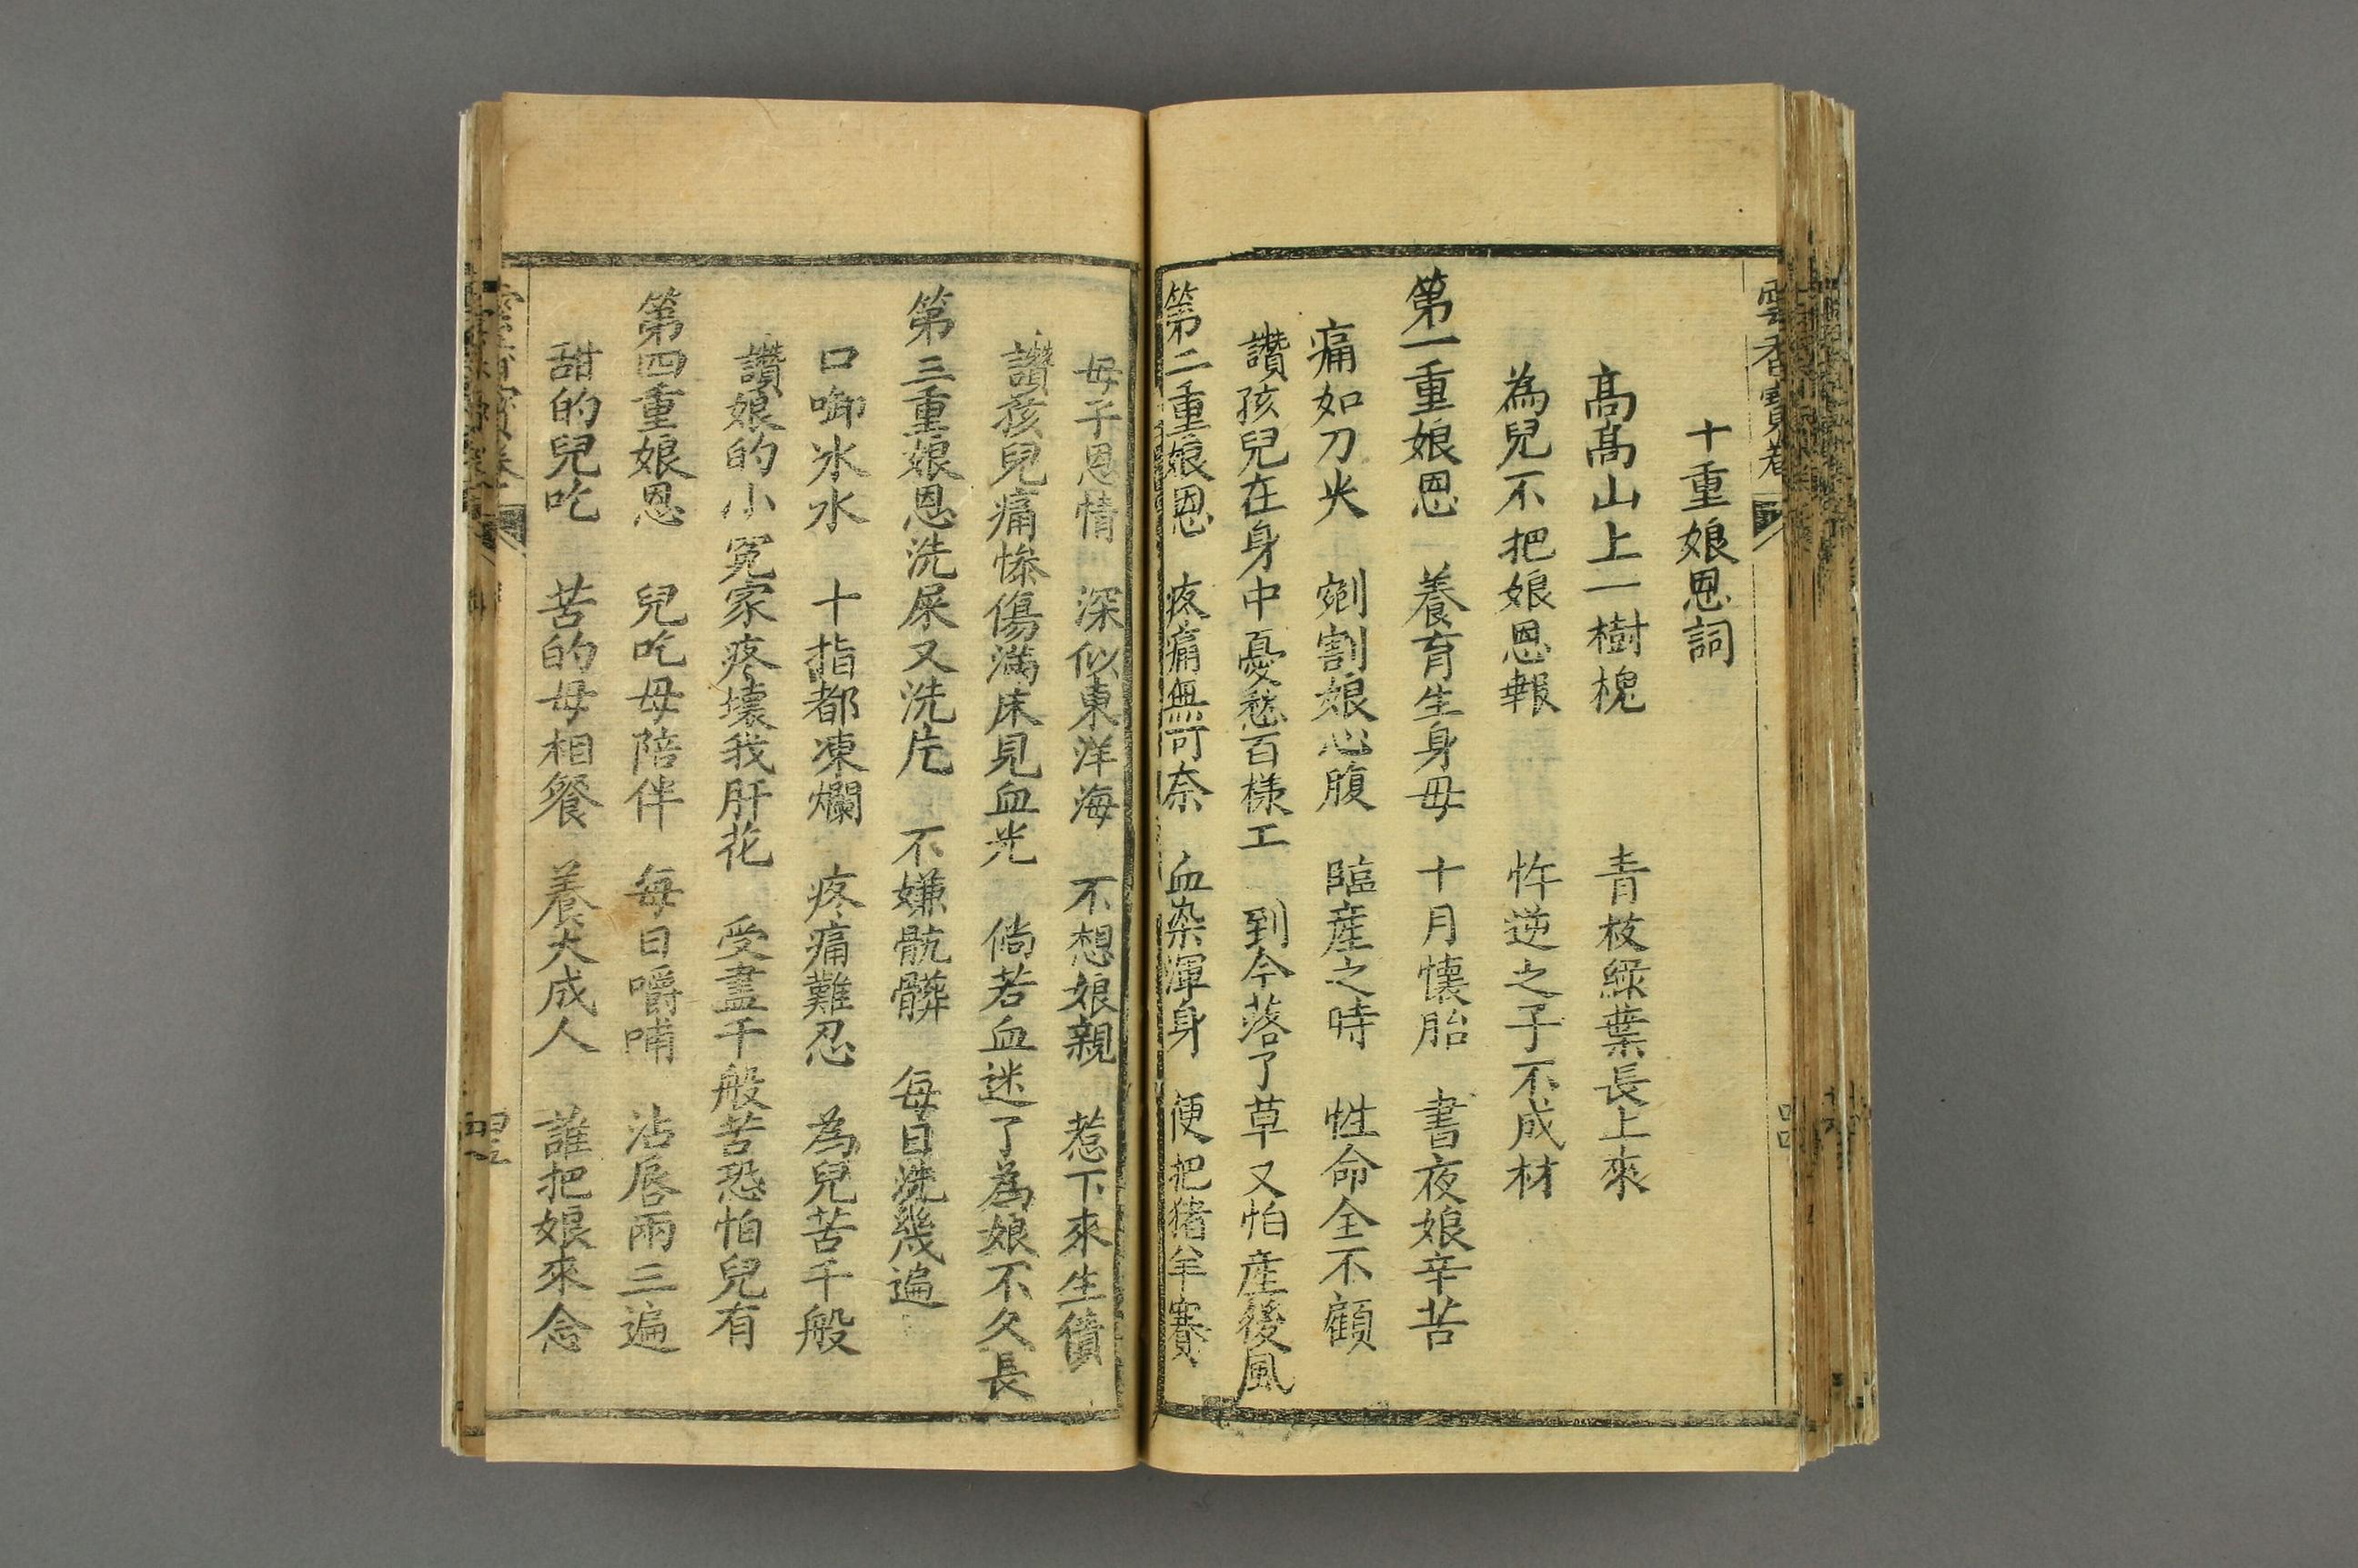 雲香寶卷
十重娘恩詞
高高山上一樹槐 青枝綠葉長上來
為兒不把娘恩報 忤逆之子不成材
第一重娘恩 養育生身母 十月懷胎 書夜娘辛苦
痛如刀尖 剜割娘心腹 臨産之時 性命全不顧
讚孩兒在身中憂愁百樣工 到今落了草又怕産後風
第二重娘恩 疼痛無可奈 血染渾身 便把猪羊賽
母子恩情 深似東洋海 不想娘親 惹下來生債
讚孩兒痛慘傷滿床見血光 倘若血迷了為娘不久長
第三重娘恩 洗屎又洗片 不嫌骯髒 每日洗幾遍
口啣氷水 十指都凍爛 疼痛難忍 為兒苦千般
讚娘的小冤家疼壞我肝花 受盡千般苦恐怕兒有
第四重娘恩 兒吃母陪伴 每日嚼哺 沾唇兩三遍
甜的兒吃 苦的母相餐 養大成人 誰把娘來念